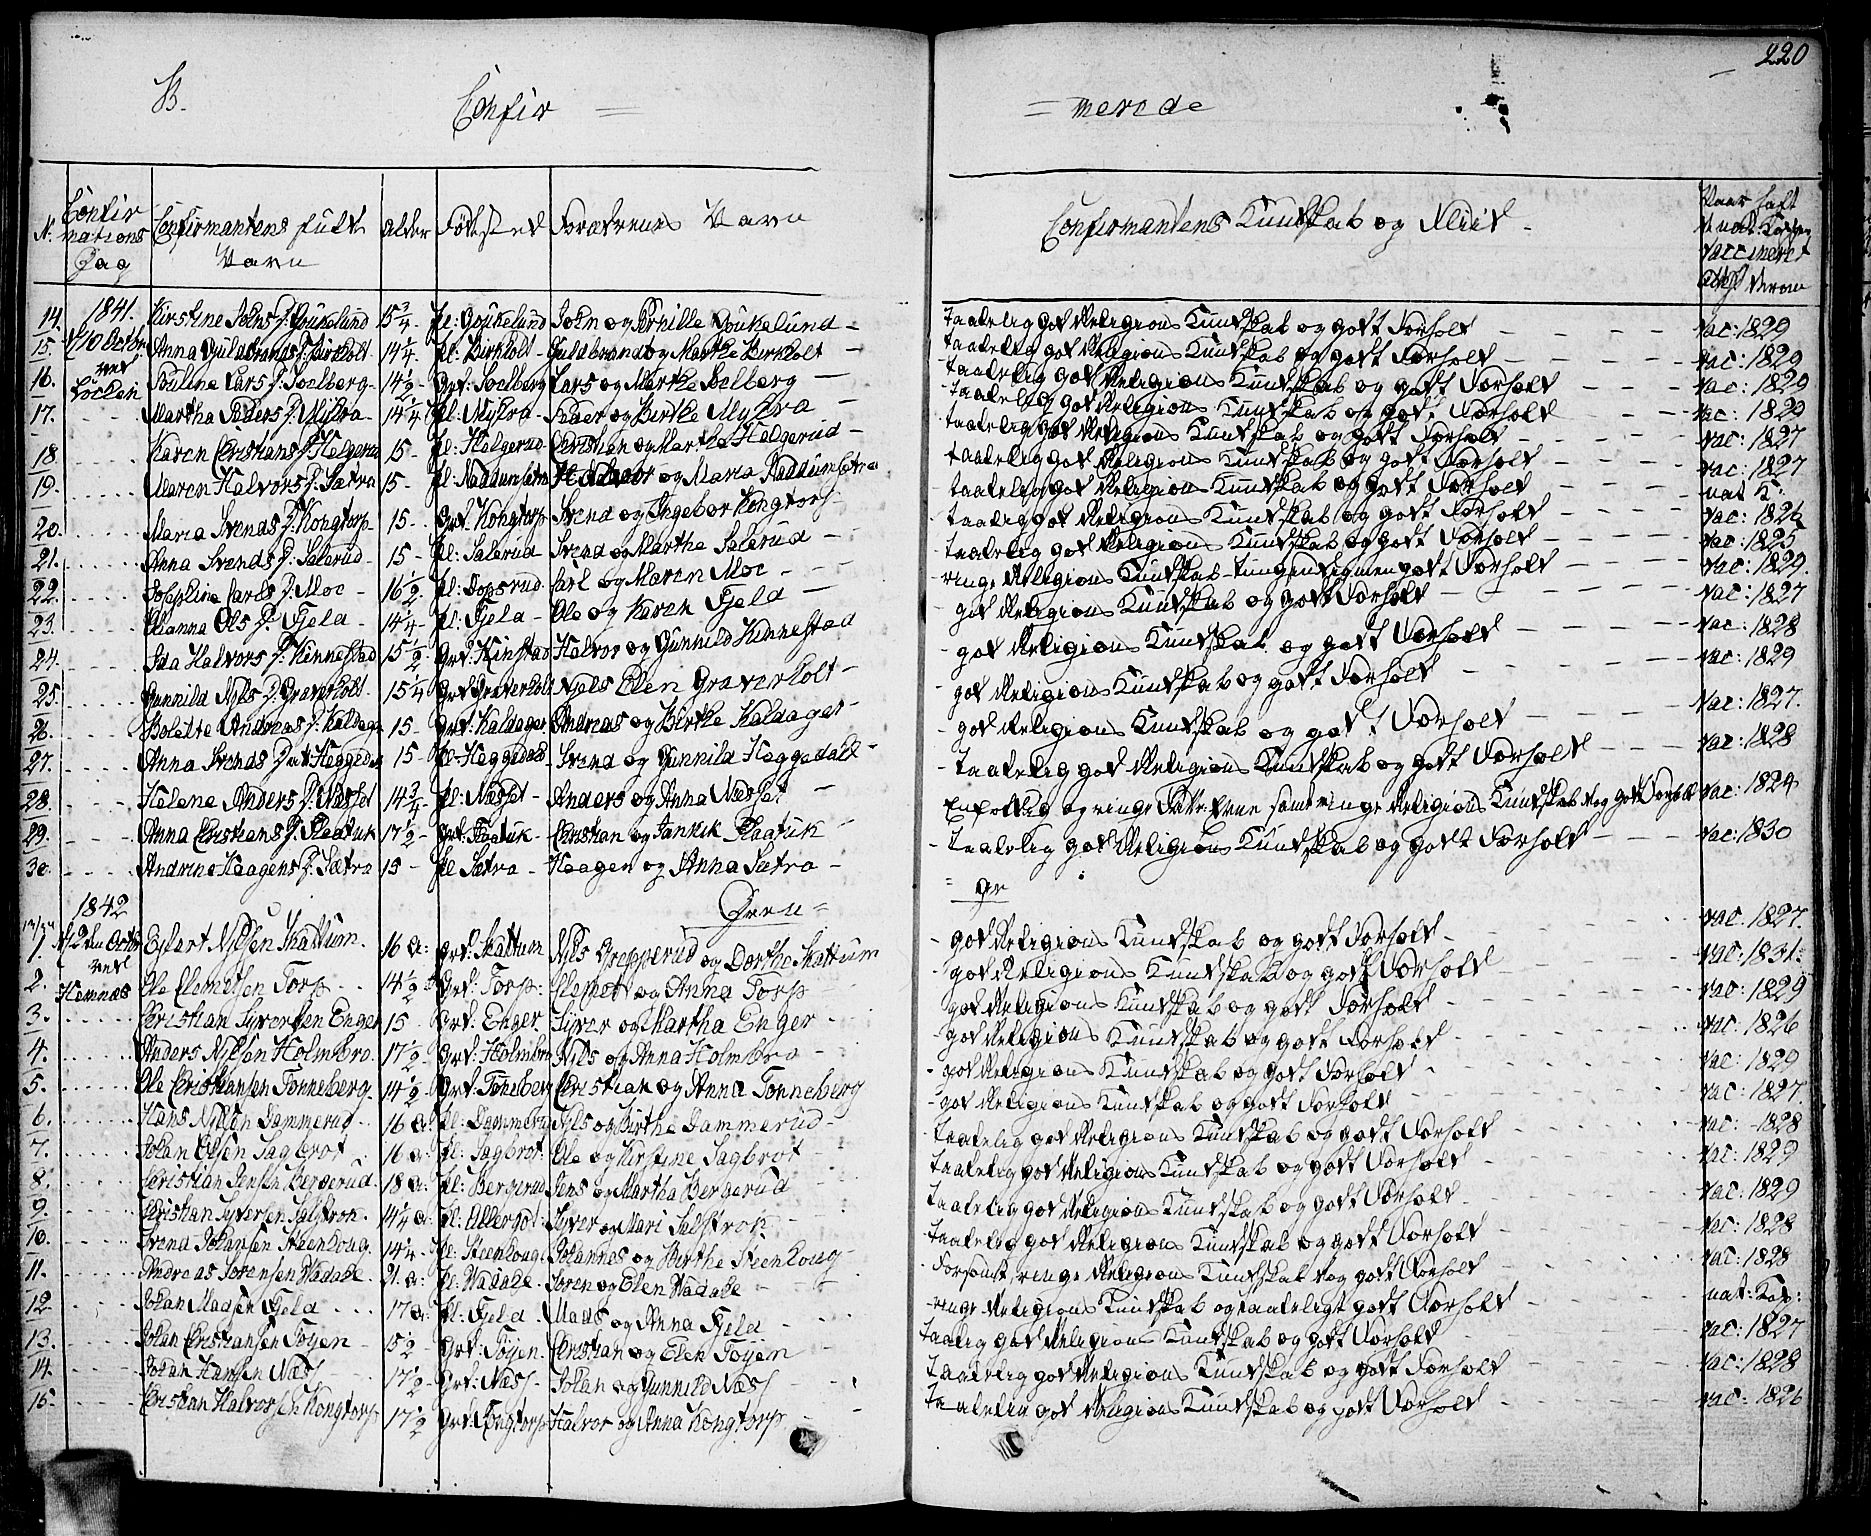 220
B. Confir = = merede
N. Confirmations Dag Confirmantens fulde Navn alder Födested Forældrenes Navn Confirmantens Kundskab og Fliid Naar haft nat: Vaccineret
14. 1841. Kirstine Johns D. 15 3/4 John og taalelig god Religions Kundskab og godt Forhold vac: 1829
15. 10 Octbr Anna Guldbrands D. Birkholt 14 1/4 Pl: Birkholt Guldbrand og Marthe Birkholt taalelig god Religions Kundskab og godt Forhold vac: 1829
16. ved Pouline Lars D. Soelberg 14 1/2 Grd: Soelberg Lars og Marthe Soelberg taalelig god Religions Kundskab og godt Forhold vac: 1829
17. Martha Peders D. Mykra 14 1/4 Pl: Mykra Peder og Birthe Mykra taalelig god Religions Kundskab og godt Forhold vac: 1829
18. Karen Christians D. Helgerud 15 Pl: Helgerud Christian og Marthe Helgerud taalelig god Religions Kundskab og godt Forhold vac: 1827
19. Maren Halvors D. Sætra 15 Halvor og Maria taalelig god Religions Kundskab og godt Forhold vac: 1827
20. Maria Svends D. Kongtorp 15 Grd: Kongtorp Svend og Ingebor Kongtorp taalelig god Religions Kundskab og godt Forhold nat K:
21. Anna Svends D. Salerud 15 Pl: Salerud Svend og Marthe Salerud taalelig god Religions Kundskab og godt Forhold vac: 1826
22. Josephine Carls D. Moe 16 1/2 Pl: Carl og Maren Moe ringe Religions Kundskab godt Forhold vac: 1825
23. Ols D. Fjela 14 1/4 Pl: Fjela Ole og Karen Fjeld god Religions Kundskab og godt Forhold vac: 1827
24. Ida Halvors D. Kinnestad 15 1/2 Grd: Kinstad Halvor og Gunnild Kinnestad god Religions Kundskab og godt Forhold vac: 1828
25. Gunnild Njels D. Graverholt 15 1/4 Grd Graverholt Njels Elen Graverholt god Religions Kundskab og godt Forhold vac: 1829
26. Bolette Andreas D. Kaldager 15 Grd: Kaldager Andreas og Birthe Kaldager god Religions Kundskab og godt Forhold vac: 1827.
27. Anna Svends D. 15 Svend og Gunnild Heggedall taalelig god Religions Kundskab og godt Forhold vac: 1828
28. Helene Anders D. Næsset 14 3/4 Pl: Næsset Anders og Anna Næsset og ringe samt ringe Religions Kundskab vac: 1824
29. Anna Christians D. 17 1/2 Christian og taalelig god Religions Kundskab og godt Forhold vac: 1830
30. Andrine Haagens D. Sætra 15 Pl Sætra Haagen og Anna Sætra
1842
1. 2den Octbr Ejlert Njlsen Skattum 16 a: Grd: Skattum Njls og Dorthe Skattum god Religions Kundskab og godt Forhold vac: 1827.
2. ved Hemnæs Ole Clemetsen Torp 14 1/2 Grd: Torp Clemet og Anna Torp god Religions Kundskab og godt Forhold vac: 1831:
3. Christian Syversen Enger 15 Grd: Enger Syver og Martha Enger god Religions Kundskab og godt Forhold vac: 1829
4. Anders Njlsen Holmbro 17 1/2 Grd: Holmbro Njls og Anna Holmbro god Religions Kundskab og godt Forhold vac: 1826
5. Ole Christiansen Tonneberg 14 1/2 Grd: Toneberg Christian og Anna Tonneberg god Religions Kundskab og godt Forhold vac: 1829
6. Hans Njlsen Dammerud 16 a: Pl: Dammerud Njls og Birthe Dammerud god Religions Kundskab og godt Forhold vac: 1827.
7. Johan Olsen Sagbrot 16 a: Pl: Sagbrot Ole og Kirstine Sagbrot taalelig god Religions Kundskab og godt Forhold vac: 1828
8. Christian Jensen Bergerud 18 a: Pl: Bergerud Jens og Martha Bergerud taalelig god Religions Kundskab og godt Forhold vac: 1829
9. Christian Syversen 14 1/4 a: Syver og Mari taalelig god Religions Kundskab og godt Forhold vac: 1829
10. Svend Johansen Steenhoug 14 1/4 Pl: Steenhoug Johannes og Birthe Steenhoug taalelig god Religions Kundskab og godt Forhold vac: 1828
11. Andreas Sorensen Vadahl 21 a: Soren og Elen ringe Religions Kundskab og godt Forhold vac: 1828
12. Johan Madsen Fjeld 17 a: Pl: Fjeld Mads og Anna Fjeld ringe Religions Kundskab og taaleligt godt Forhold nat: Kop:
13. Johan Christiansen Tøyen 15 1/2 Grd: Tøyen Christian og Elen Tøyen taalig god Religions Kundskab og godt Forhold vac: 1827
14. Johan Hansen Næss 17 1/2 Grd: Næss Johan og Gunnild Næss taalelig god Religions Kundskab og godt Forhold vac: 1828
15. Christian Halvorsen Kongtorp 17 1/2 Grd Kongtorp Halvor og Anna Kongtorp taalelig god Religions Kundskab og godt Forhold vac: 1826